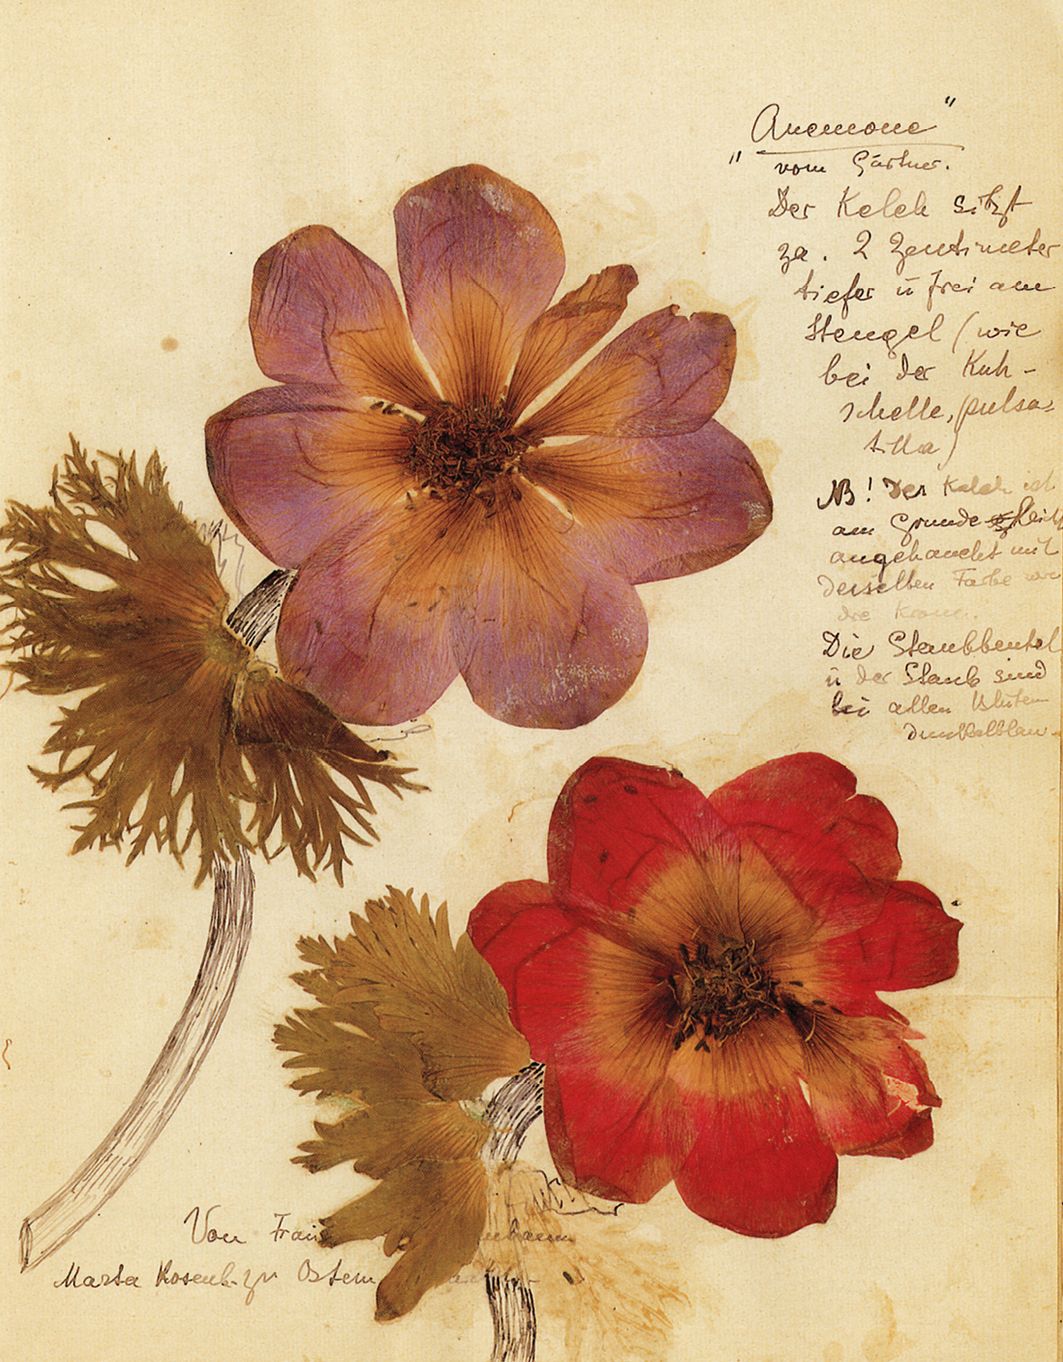 "Anemone"
vom Gärtner.
Der Kelch sitzt
za. 2 Zentimeter
tiefer ü frei am
Stengel (wie
bei der Kuh-
schelle, (pulsa-
tilla)
NB! Der Kelch ist
am Grunde
angehaucht mit
derselben Farbe wie
die Krone.
Die Staubbeutel
ü der Staub sind
bei allen Blüten
dunkelblau.
Von
Marta Rosenb. zu Ostern